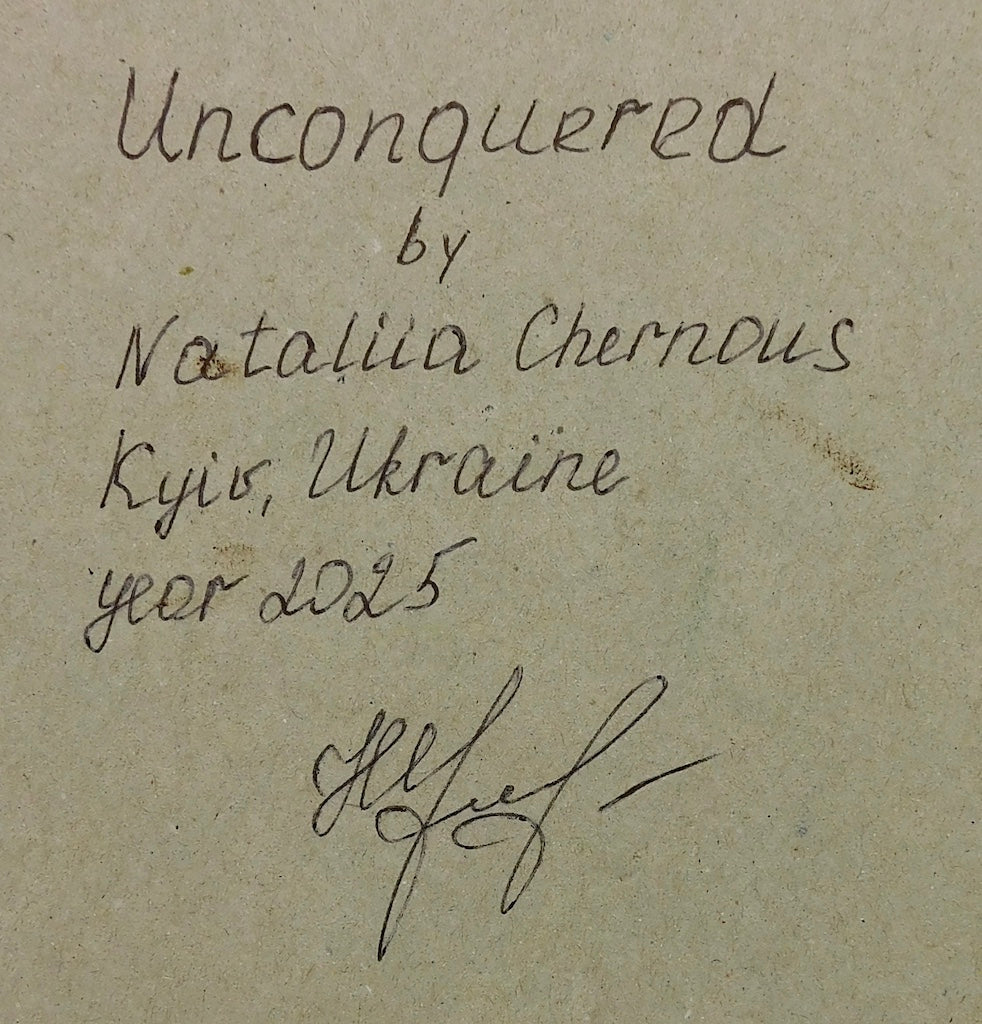 Unconquered
by
Nataliia Chernous
Kyiv, Ukraine
year 2025